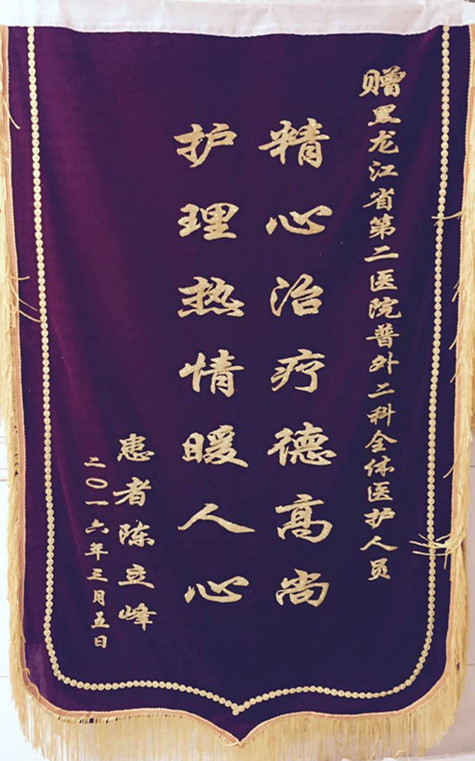 赠黑龙江省第二医院普外二科全体医护人员
精心治疗德高尚
护理热情暖人心
患者陈立峰
二〇一六年三月五日